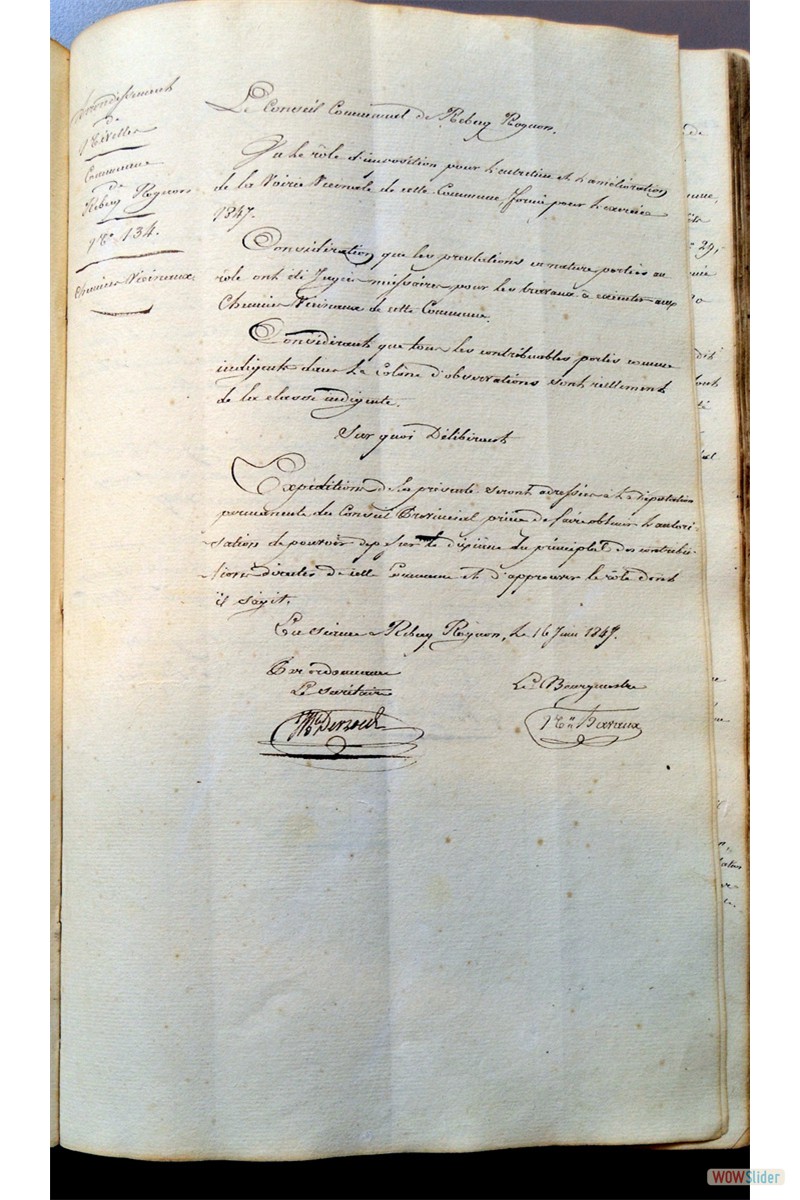 Arrondissement
de
Nivelles
Commune
de
Rebecq Rognon
N° 134.
Chemins Vicinaux
Le Conseil Communal de Rebecq Rognon.
Vu le rôle d'imposition pour l'entretien et l'amélioration
de la Voirie Vicinale de cette Commune formé pour l'exercice
1847.
Considération que les prestations en nature portées au
rôle ont été Jugées nécessaires pour les travaux à exécuter aux
Chemins Vicinaux de cette Commune.
Considérant que tous les contribuables portés comme
indigents dans la Colône d'observations sont réellement
de la classe indigente.
Sur quoi Délibérant
Expéditions de la présente seront adressées à la députation
permanente du Conseil Provincial priée de faire obtenir l'autori-
sation de pouvoir sur le dixième du principal des contribu-
tions directes de cette Commune et d'approuver le rôle dont
il s'agit.
En séance à Rebecq Rognon, le 16 Juin 1847.
Par ordonnance
Le Secrétaire
Le Bourgmestre
29,
WOWSlider